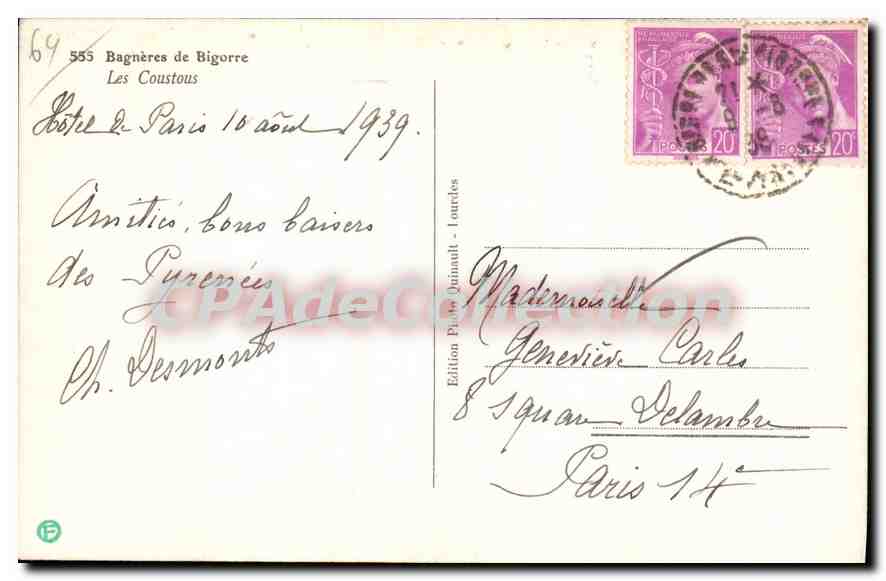 64
555 Bagnères de Bigorre
Les Coustous
Hôtel de Paris 10 août 1939.
Amitiés, bons baisers
des Pyrénées
Ch. Desmonts
Edition Photo Quinault - Lourdes
REPUBLIQUE FRANÇAISE
POSTES 20c
POSTES 20c
Mademoiselle
Geneviève Carles
8 square Delambre
Paris 14e
CPAdeCollection